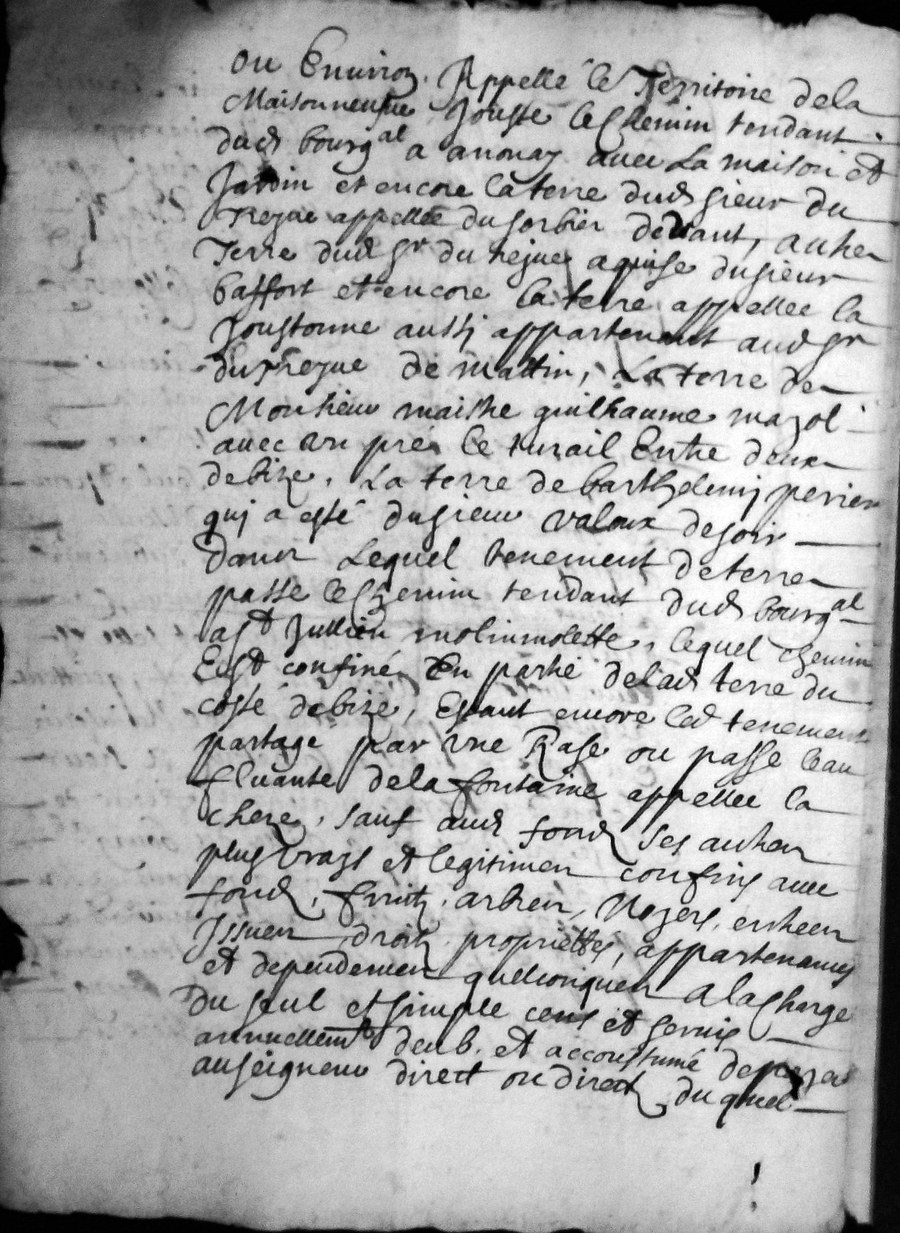 ou Environ. Appellé le Territoire dela
Maisonneufve Jouste le Chemin tendant
dud bourgal a anonay avec La maison et
Jardin et encore la terre dud sieur du
appellée du sorbier devant, autre
Terre dud sr du aquise du sieur
baffort et encore la terre appellee la
Joustonne aussj appartenant aud sr
du de mattin, La terre de
Monsieur maistre guilhaume mazol
avec un pré le turail Entre deux
debize, La terre de barthelemj perrier
quj a esté du sieur valoux desoir
dans Lequel tenement de terre
passe le Chemin tendant dud bourgal
a st Jullien molinmolette, lequel chemin
Est confiné En partie delad terre du
costé debize, Estant encore led tenement
partagé par Une Rase ou passe leau
fluante dela fontaine appellee la
chere, sauf aud fond ses autres
plus vrays et legitimes confins avec
fond, fruitz, arbres, Noyers, entrees
Issues, droitz, proprietés, appartenances
et dependences quelconques Ala Charge
du seul et simple cens et servis
annuellemt deub, et accoustumé depayer
au seigneur direct ou directz duquel